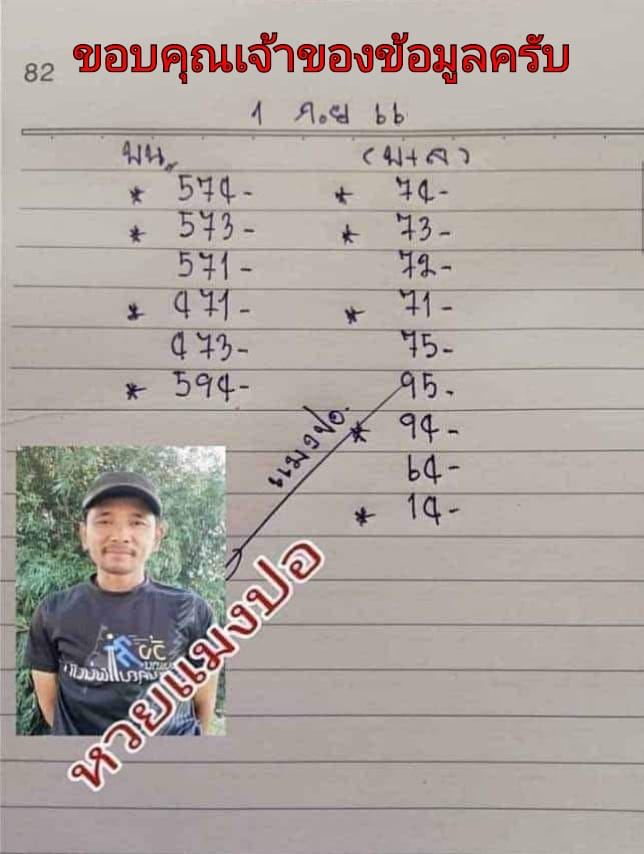 ขอบคุณเจ้าของข้อมูลครับ
82
1 ก.ย 66
บน (บ+ล)
* 574- * 74-
* 573- * 73-
571- 72-
* 471- * 71-
473- 75-
* 594- 95-
แมงปอ. * 94-
64-
* 14-
หวยแมงปอ